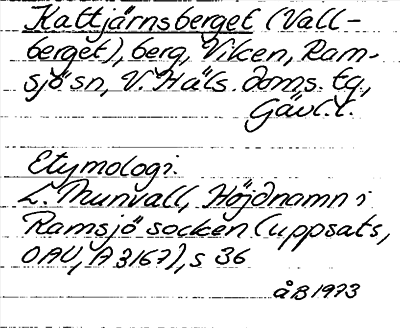 Kattjärnsberget (Vall-
berget), berg, Viken, Ram-
sjö sn, V. Häls. doms. tg,
Gävl. l.
Etymologi.
L. Munvall, Höjdnamn i
Ramsjö socken (uppsats,
OAU, A 3167), s 36
åB 1973